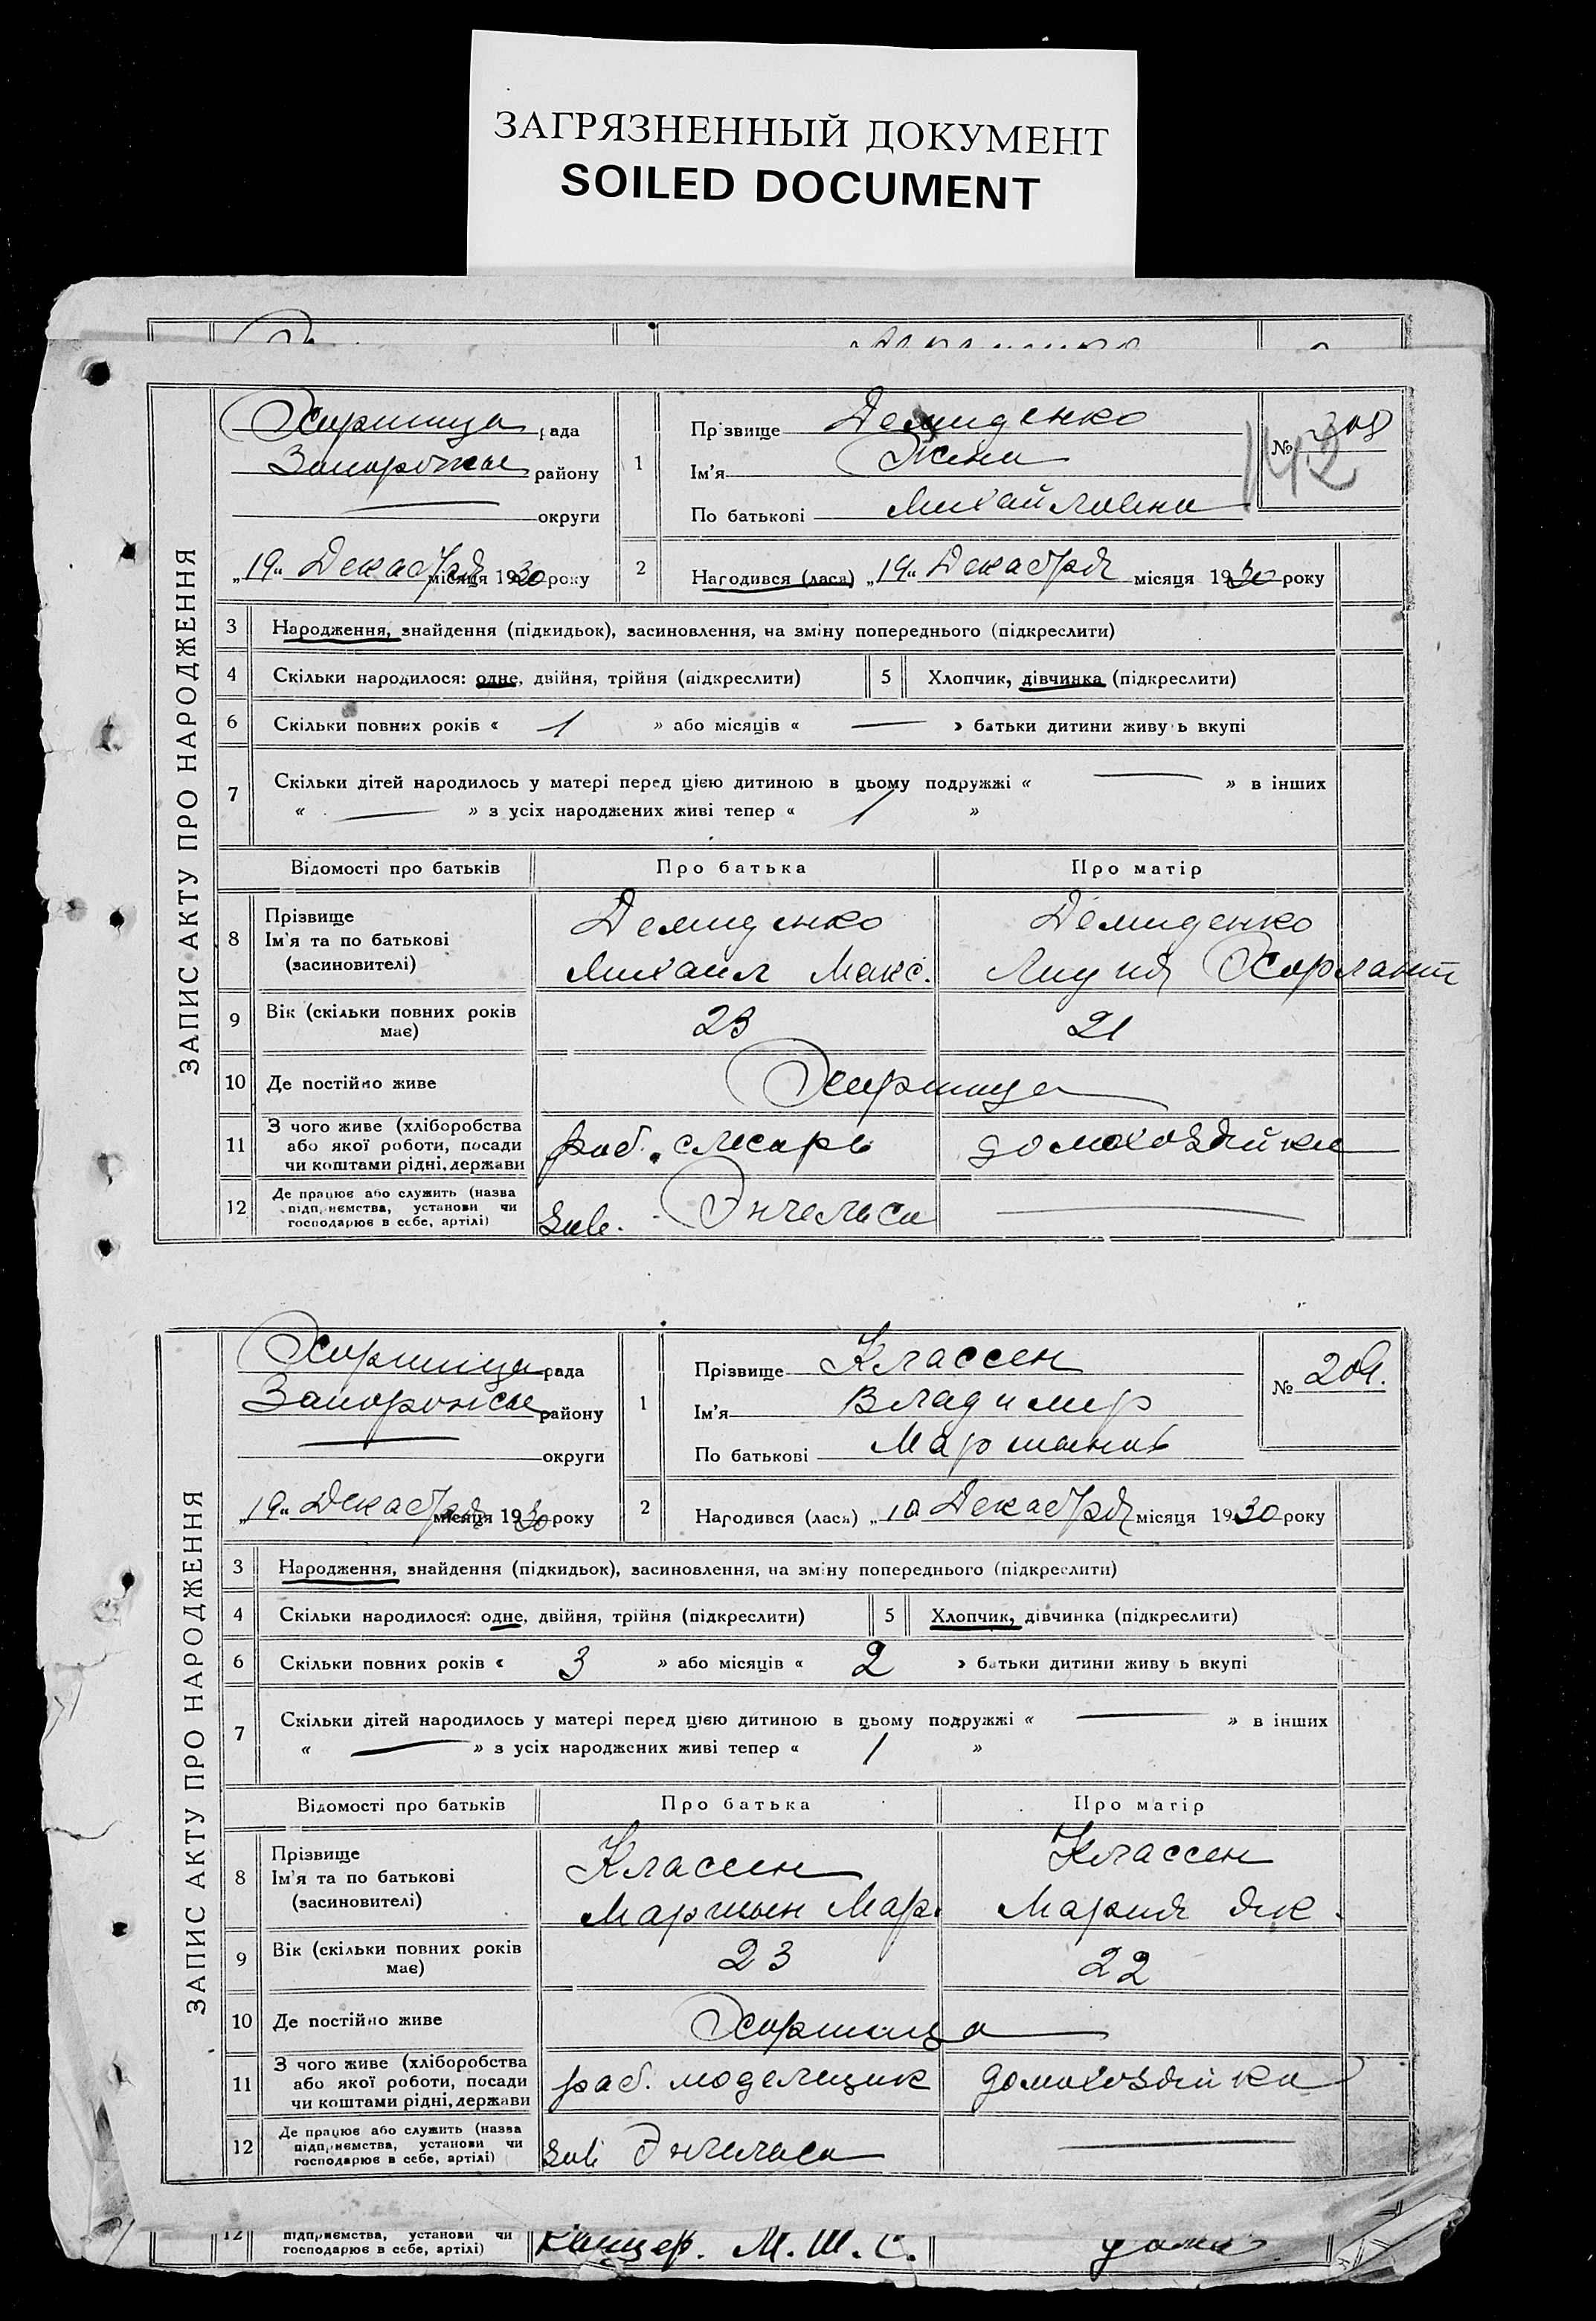 ЗАГРЯЗНЕННЫЙ ДОКУМЕНТ
SOILED DOCUMENT
ЗАПИС АКТУ ПРО НАРОДЖЕННЯ
Хортица рада
Запорожье району
— округи
„19“ Декабря місяця 1930 року
1
Прізвище Демиденко
Ім'я Жена
По батькові Михайловна
№ 208
142
2
Народився (лася) „19“ Декабря місяця 1930 року
3 Народження, знайдення (підкидьок), засиновлення, на зміну попереднього (підкреслити)
4 Скільки народилося: одне, двійня, трійня (підкреслити)
5 Хлопчик, дівчинка (підкреслити)
6 Скільки повних років « 1 » або місяців « — » батьки дитини живуть вкупі
7 Скільки дітей народилось у матері перед цією дитиною в цьому подружжі « — » в інших
« — » з усіх народжених живі тепер « 1 »
Відомості про батьків Про батька Про матір
8 Прізвище
Ім'я та по батькові
(засиновителі)
Демиденко
Михаил Макс.
Демиденко
Лидия
9 Вік (скільки повних років
має)
23 21
10 Де постійно живе Хортица
11 З чого живе (хліборобства
або якої роботи, посади
чи коштами рідні, держави
раб. слесарь домохозяйка
12 Де працює або служить (назва
підприємства, установи чи
господарює в себе, артілі)
Зав. Энгельса —
ЗАПИС АКТУ ПРО НАРОДЖЕННЯ
Хортица рада
Запорожье району
— округи
„19“ Декабря місяця 1930 року
1
Прізвище Классен
Ім'я Владимир
По батькові Мартынов
№ 209.
2
Народився (лася) „10 Декабря місяця 1930 року
3 Народження, знайдення (підкидьок), засиновлення, на зміну попереднього (підкреслити)
4 Скільки народилося: одне, двійня, трійня (підкреслити)
5 Хлопчик, дівчинка (підкреслити)
6 Скільки повних років « 3 » або місяців « 2 » батьки дитини живуть вкупі
7 Скільки дітей народилось у матері перед цією дитиною в цьому подружжі « — » в інших
« — » з усіх народжених живі тепер « 1 »
Відомості про батьків Про батька Про матір
8 Прізвище
Ім'я та по батькові
(засиновителі)
Классен
Мартын Мар.
Классен
Мария Як.
9 Вік (скільки повних років
має)
23 22
10 Де постійно живе Хортица
11 З чого живе (хліборобства
або якої роботи, посади
чи коштами рідні, держави
раб. модельщик домохозяйка
12 Де працює або служить (назва
підприємства, установи чи
господарює в себе, артілі)
Зав. Энгельса —
12 підприємства, установи чи
господарює в себе, артілі)
М. Ш. С. дома